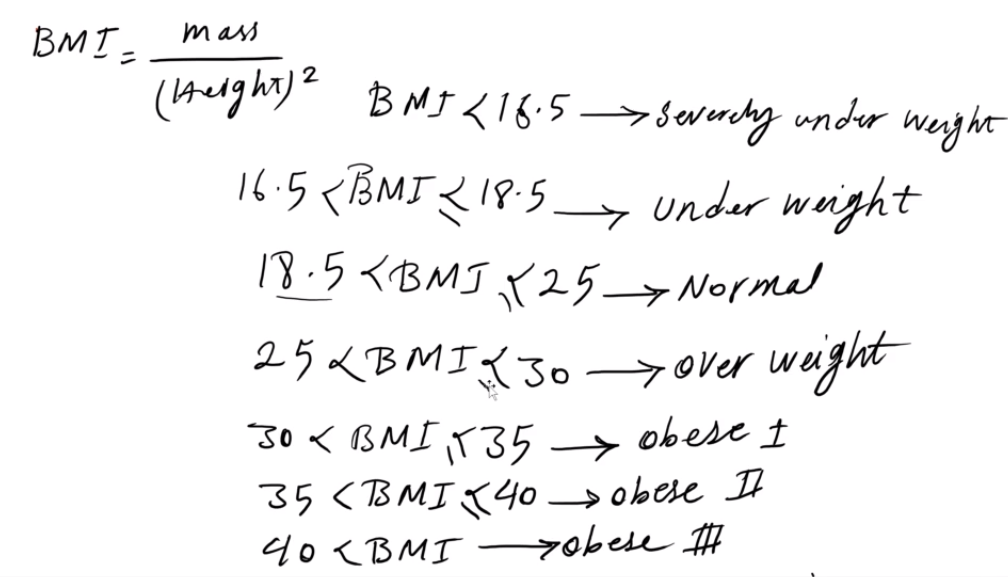 BMI = mass / (Height)²
BMI < 16.5 → severely under weight
16.5 < BMI ≤ 18.5 → under weight
18.5 < BMI ≤ 25 → Normal
25 < BMI ≤ 30 → over weight
30 < BMI ≤ 35 → obese I
35 < BMI ≤ 40 → obese II
40 < BMI → obese III